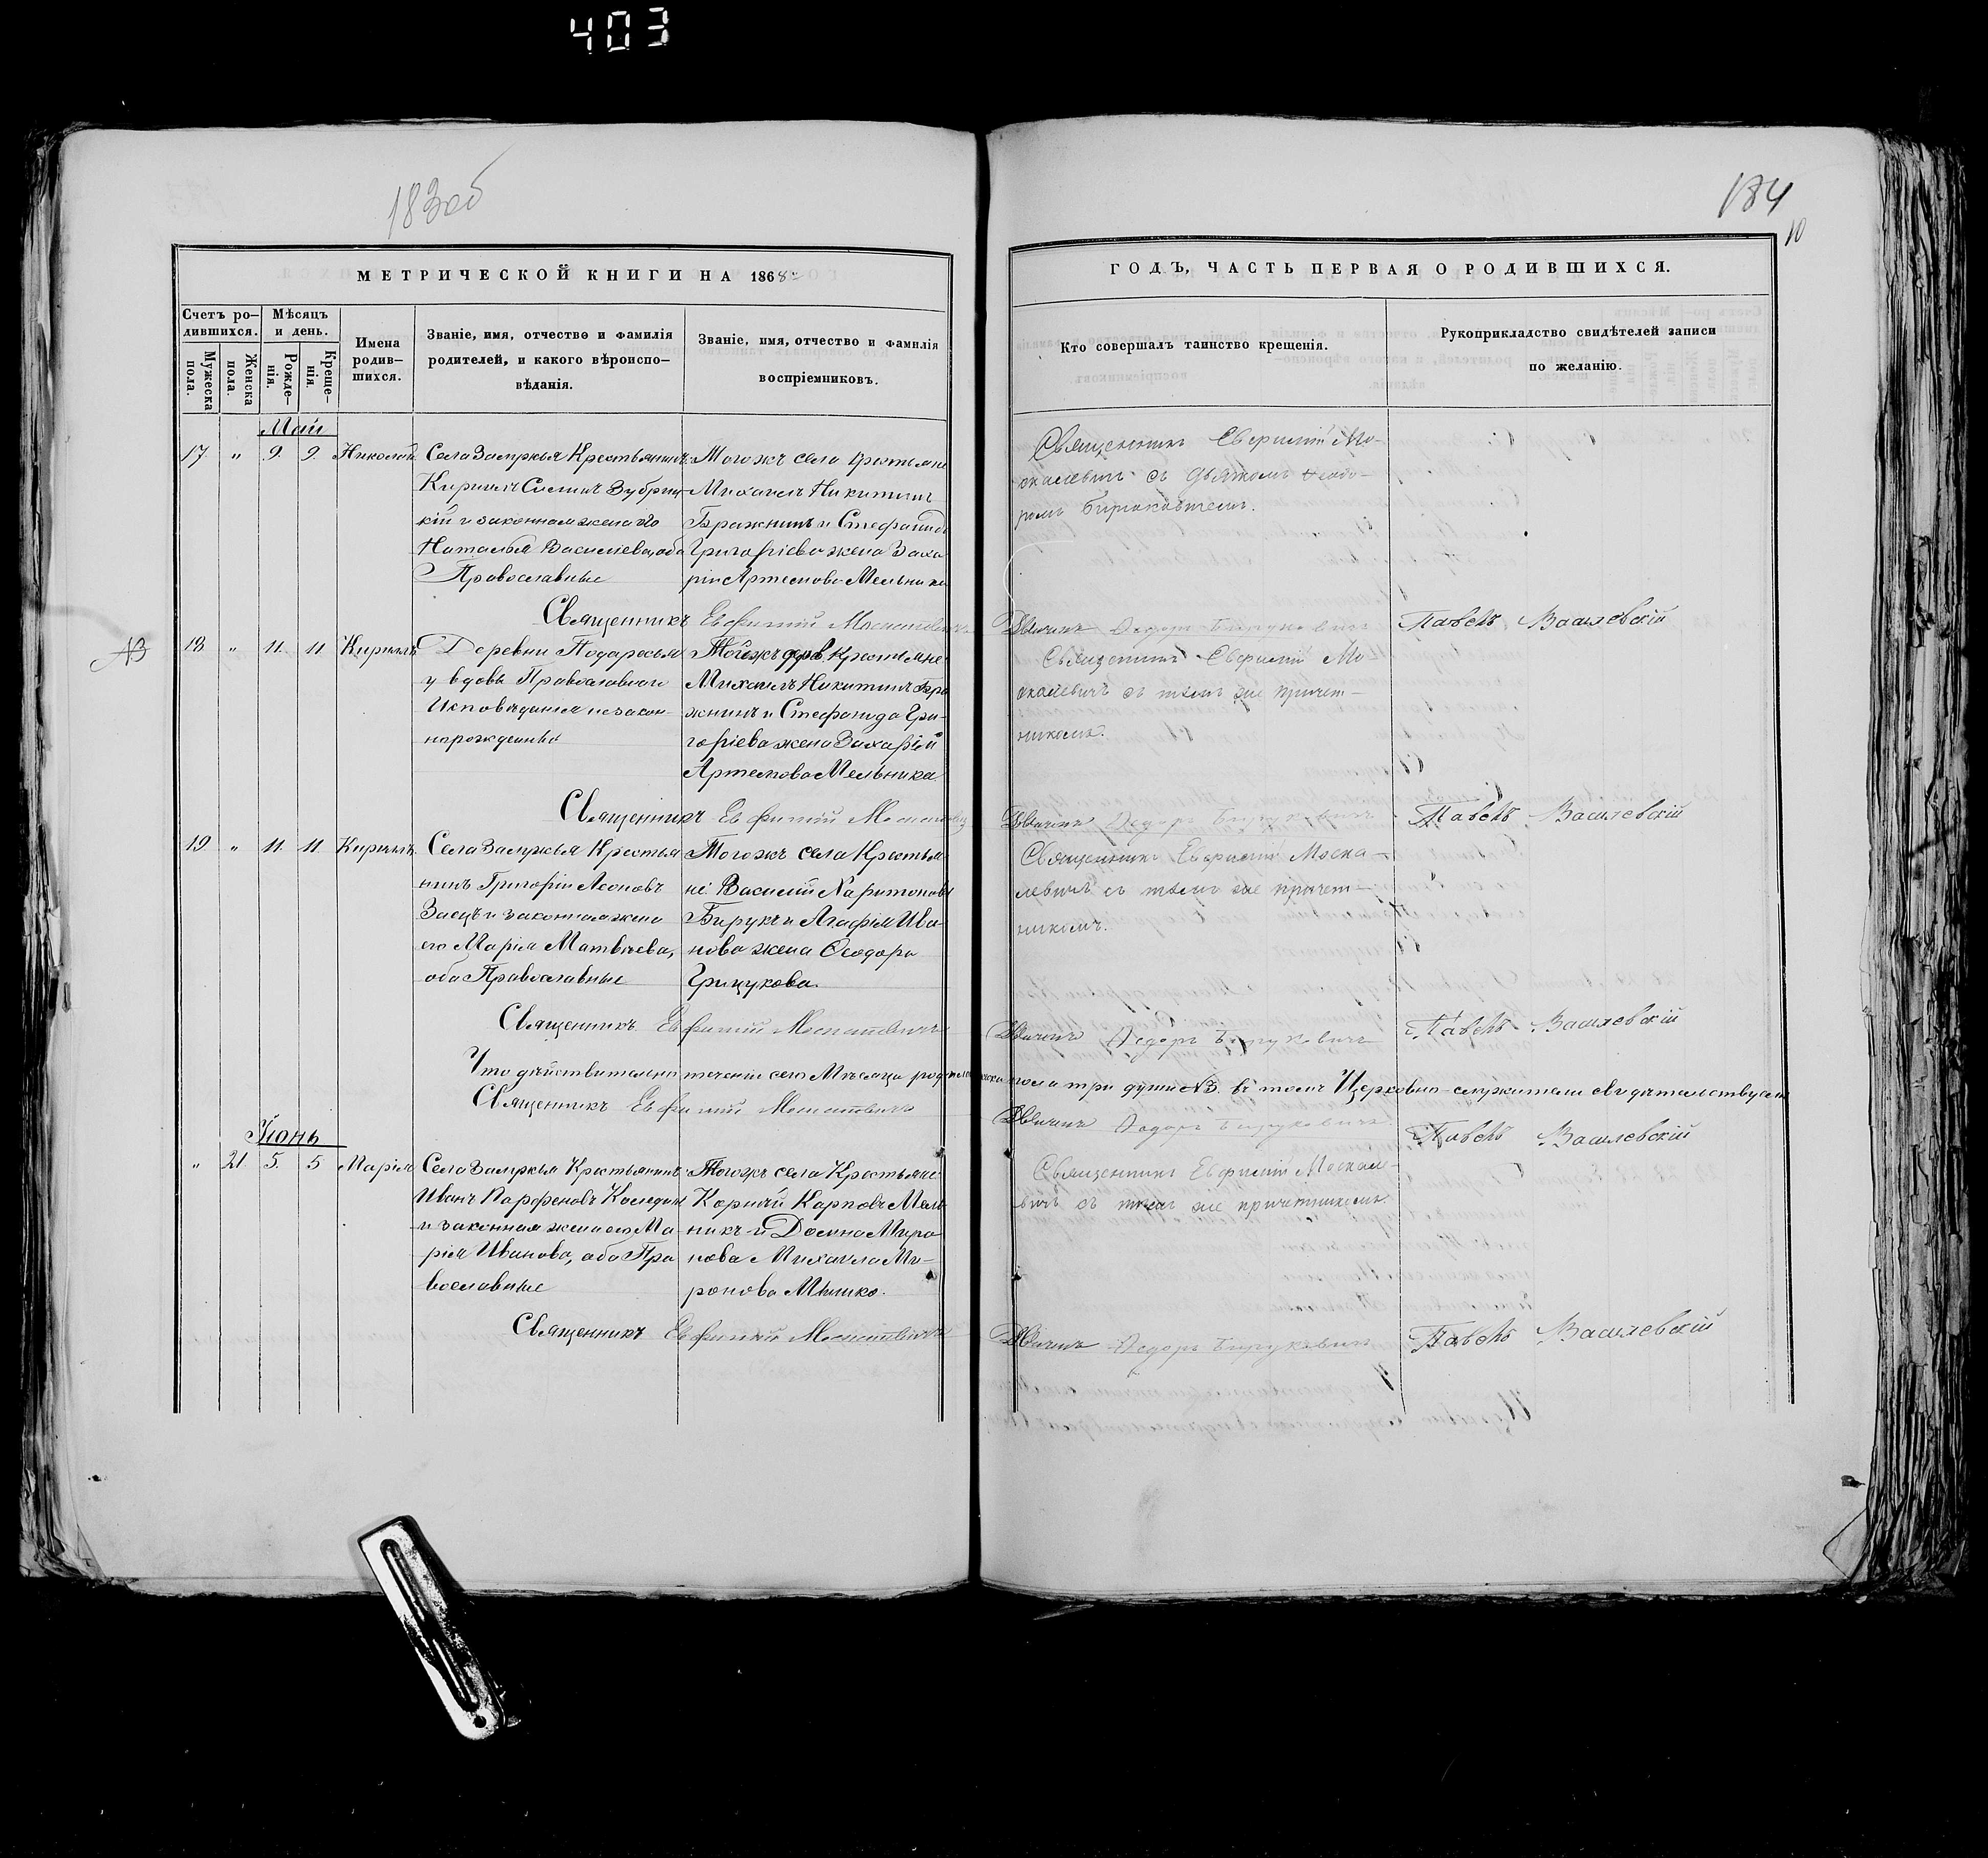 403
183об
184
10
МЕТРИЧЕСКОЙ КНИГИ НА 1868
ГОДЪ, ЧАСТЬ ПЕРВАЯ О РОДИВШИХСЯ.
Счетъ ро-
дившихся.
Мужеска пола.
Женска пола.
Мѣсяцъ
и день.
Рожде-
нія.
Креще-
нія.
Имена
родив-
шихся.
Званіе, имя, отчество и фамилія
родителей, и какого вѣроиспо-
вѣданія.
Званіе, имя, отчество и фамилія
воспріемниковъ.
Кто совершалъ таинство крещенія.
Рукоприкладство свидѣтелей записи
по желанію.
Май
17 " 9. 9. Николай
Села Залужья Крестьянинъ
Кириллъ Силинъ Зубриц-
кій и законная жена его
Наталья Василіева, оба
Православные
Тогожъ села крестьяне
Михаилъ Никитинъ
Бражникъ и Стефанида
Григоріева жена Заха-
рія Артемова Мельника
Священникъ Евфимій Мо-
скалевичъ съ дьячкомъ Ѳеодо-
ромъ Бируковичемъ.
Священникъ Евфимій Москалевичъ
Дьячекъ Ѳедоръ Бируковичъ
Павелъ Василевскій
18 " 11. 11 Кириллъ
Деревни
у вдовы Православного
Исповѣданія незакон-
норожденный
Тойжъ дерв. Крестьяне
Михаилъ Никитинъ Бра-
жникъ и Стефанида Гри-
горіева жена Захарій
Артемова Мельника
Священникъ Евфимій Мо-
скалевичъ съ тѣмъ же причет-
никомъ.
Священникъ Евфимій Москалевичъ
Дьячекъ Ѳедоръ Бируковичъ
Павелъ Василевскій
19 " 11. 11 Кириллъ
Села Залужья Крестья-
нинъ Григорій Леоновъ
Заецъ и законная жена
его Марія Матвѣева,
оба Православные
Тогожъ села Крестья-
не Василій Харитоновъ
Бирукъ и Агафія Ива-
нова жена Ѳеодора
Грицукова.
Священникъ Евфимій Моска-
левичъ съ тѣмъ же причет-
никомъ.
Священникъ Евфимій Москалевичъ
Дьячекъ Ѳедоръ Бируковичъ
Павелъ Василевскій
Что дѣйствительно теченіи сего Мѣсяца пола три души №3. въ томъ Церковно-служители свидѣтельствуемъ
Священникъ Евфимій Москалевичъ
Дьячекъ Ѳедоръ Бируковичъ
Павелъ Василевскій
Іюнь
" 21 5. 5 Марія
Села Залужья Крестьянинъ
Иванъ Парфеновъ
и законная жена его Ма-
рія Иванова, оба Пра-
вославные
Тогожъ села Крестьяне
Корнилій Карповъ Мель-
никъ и Домна Миро-
нова Михаила Ми-
ронова
Священникъ Евфимій Москале-
вичъ съ тѣмъ же причетникомъ.
Священникъ Евфимій Москалевичъ
Дьячекъ Ѳедоръ Бируковичъ
Павелъ Василевскій